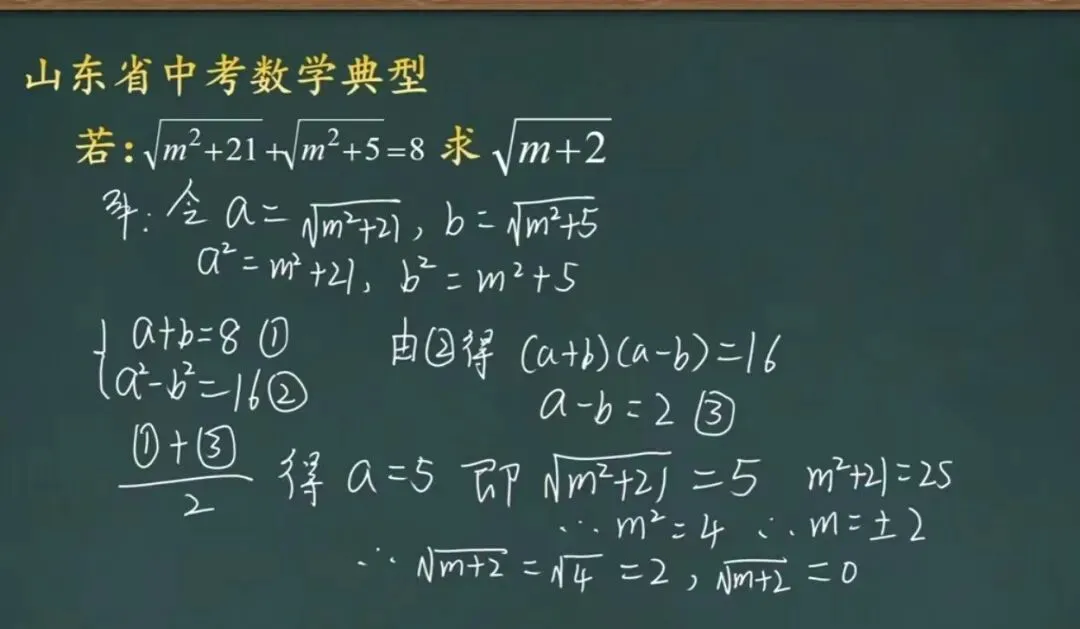 山东省中考数学典型
若:√(m²+21)+√(m²+5)=8 求 √(m+2)
解:令 a=√(m²+21), b=√(m²+5)
a²=m²+21, b²=m²+5
{a+b=8 ① 由②得 (a+b)(a-b)=16
a²-b²=16② a-b=2 ③
(①+③)/2 得 a=5 即 √(m²+21)=5 m²+21=25
∴m²=4 ∴m=±2
∴√(m+2)=√4=2, √(m+2)=0